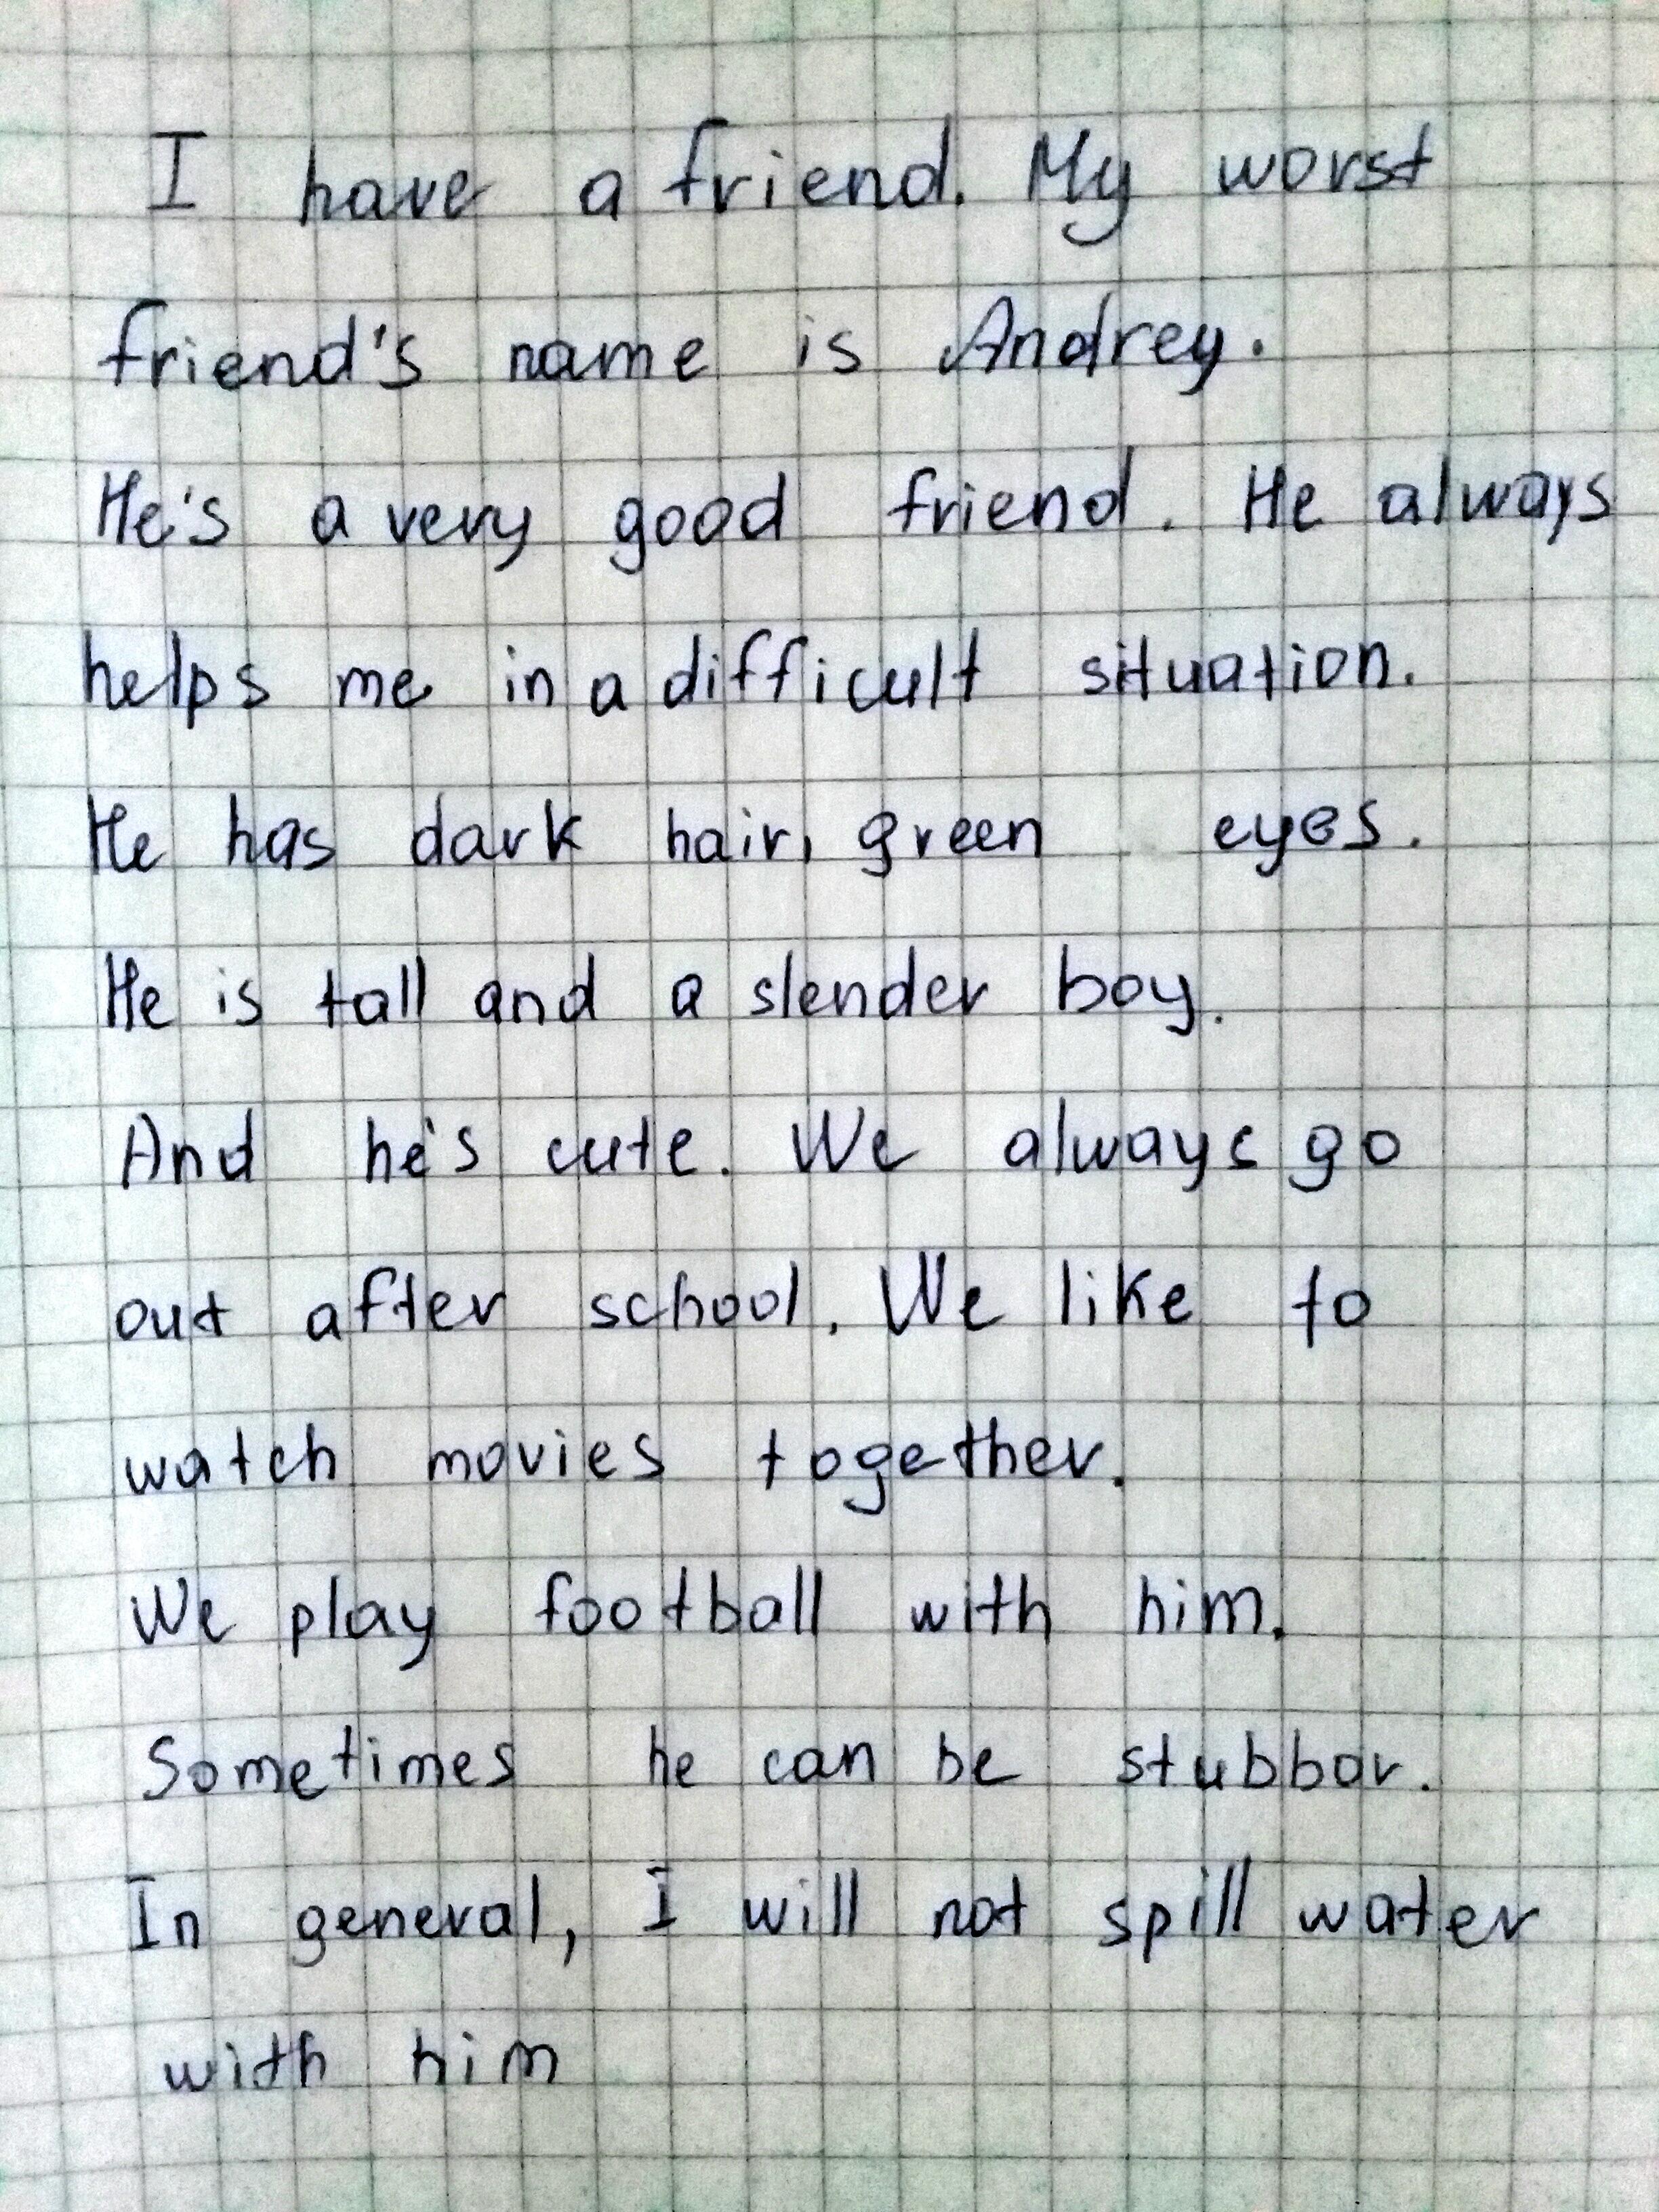 I have a friend. My worst
friend's name is Andrey.
He's a very good friend. He always
helps me in a difficult situation.
He has dark hair, green eyes.
He is tall and a slender boy.
And he's cute. We always go
out after school. We like to
watch movies together.
We play football with him.
Sometimes he can be stubbor.
In general, I will not spill water
with him